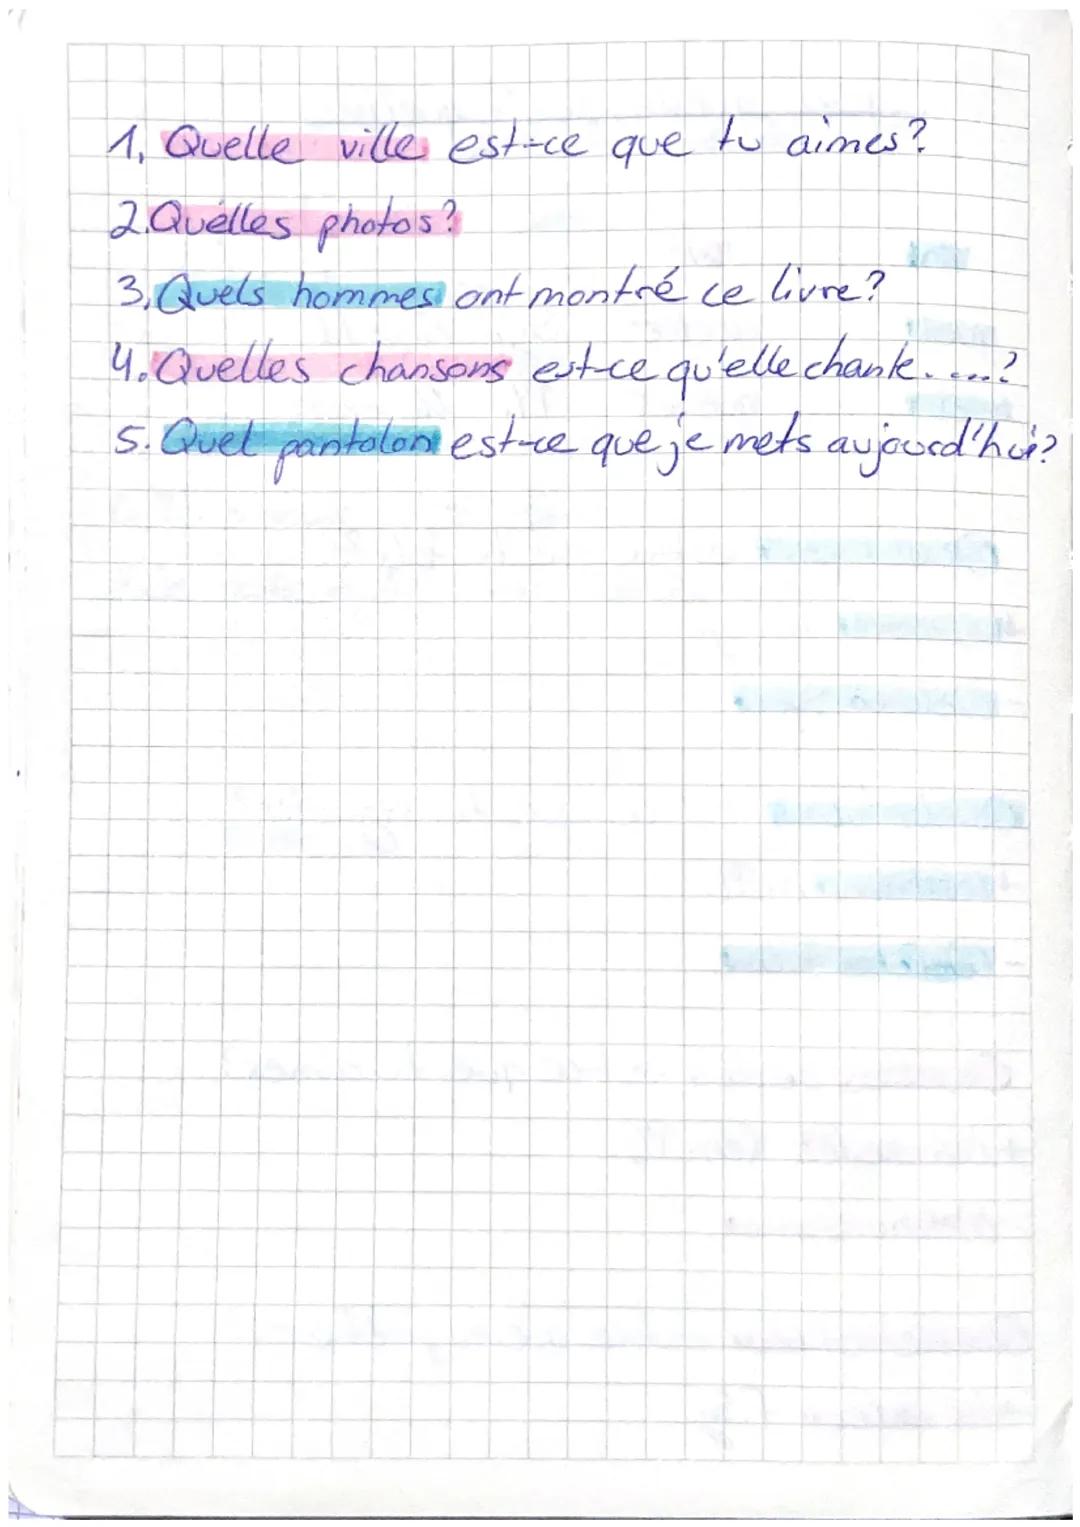 1. Quelle ville est-ce que tu aimes?
2. Quelles photos?
3. Quels hommes ont montré ce livre?
4. Quelles chansons est-ce qu'elle chante.....?
5. Quel pantalon est-ce que je mets aujourd'hui?